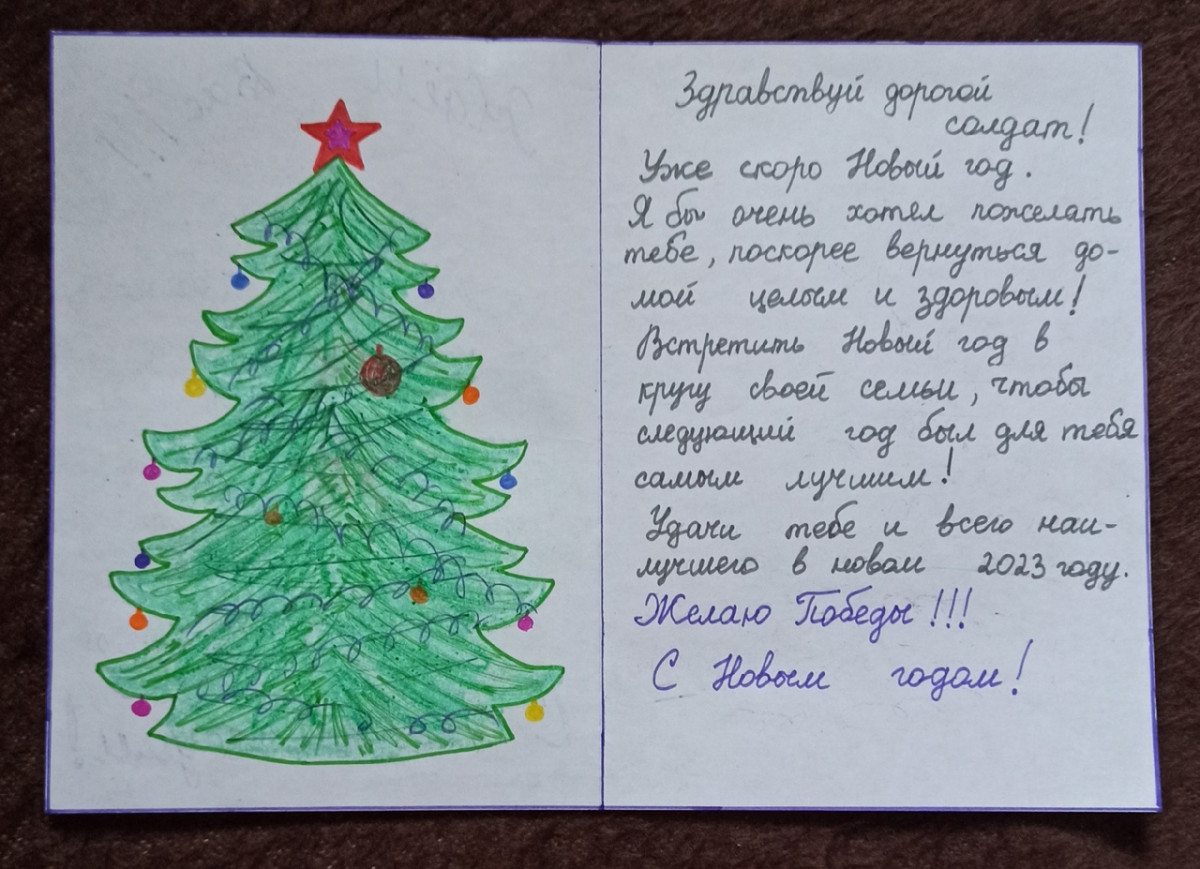 Здравствуй дорогой
солдат!
Уже скоро Новый год.
Я бы очень хотел пожелать
тебе, поскорее вернуться до-
мой целым и здоровым!
Встретить Новый год в
кругу своей семьи, чтобы
следующий год был для тебя
самым лучшим!
Удачи тебе и всего наи-
лучшего в новом 2023 году.
Желаю Победы!!!
С Новым годом!